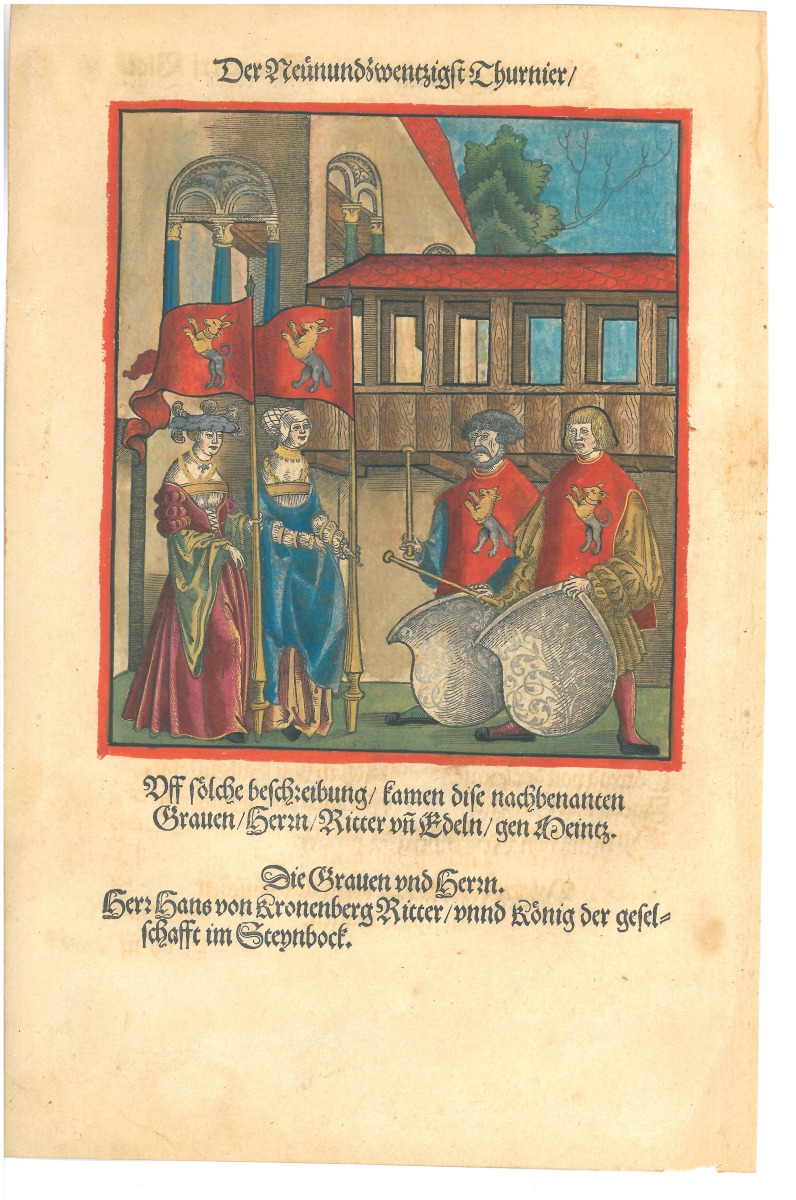 Der Neünundzwentzigst Thurnier/
Vff sölche beschreibung/ kamen dise nachbenanten
Grauen/Herrn/Ritter vñ Edeln/gen Meintz.
Die Grauen vnd Herrn.
Herr Hans von Kronenberg Ritter/vnnd König der gesel⸗
schafft im Steynbock.